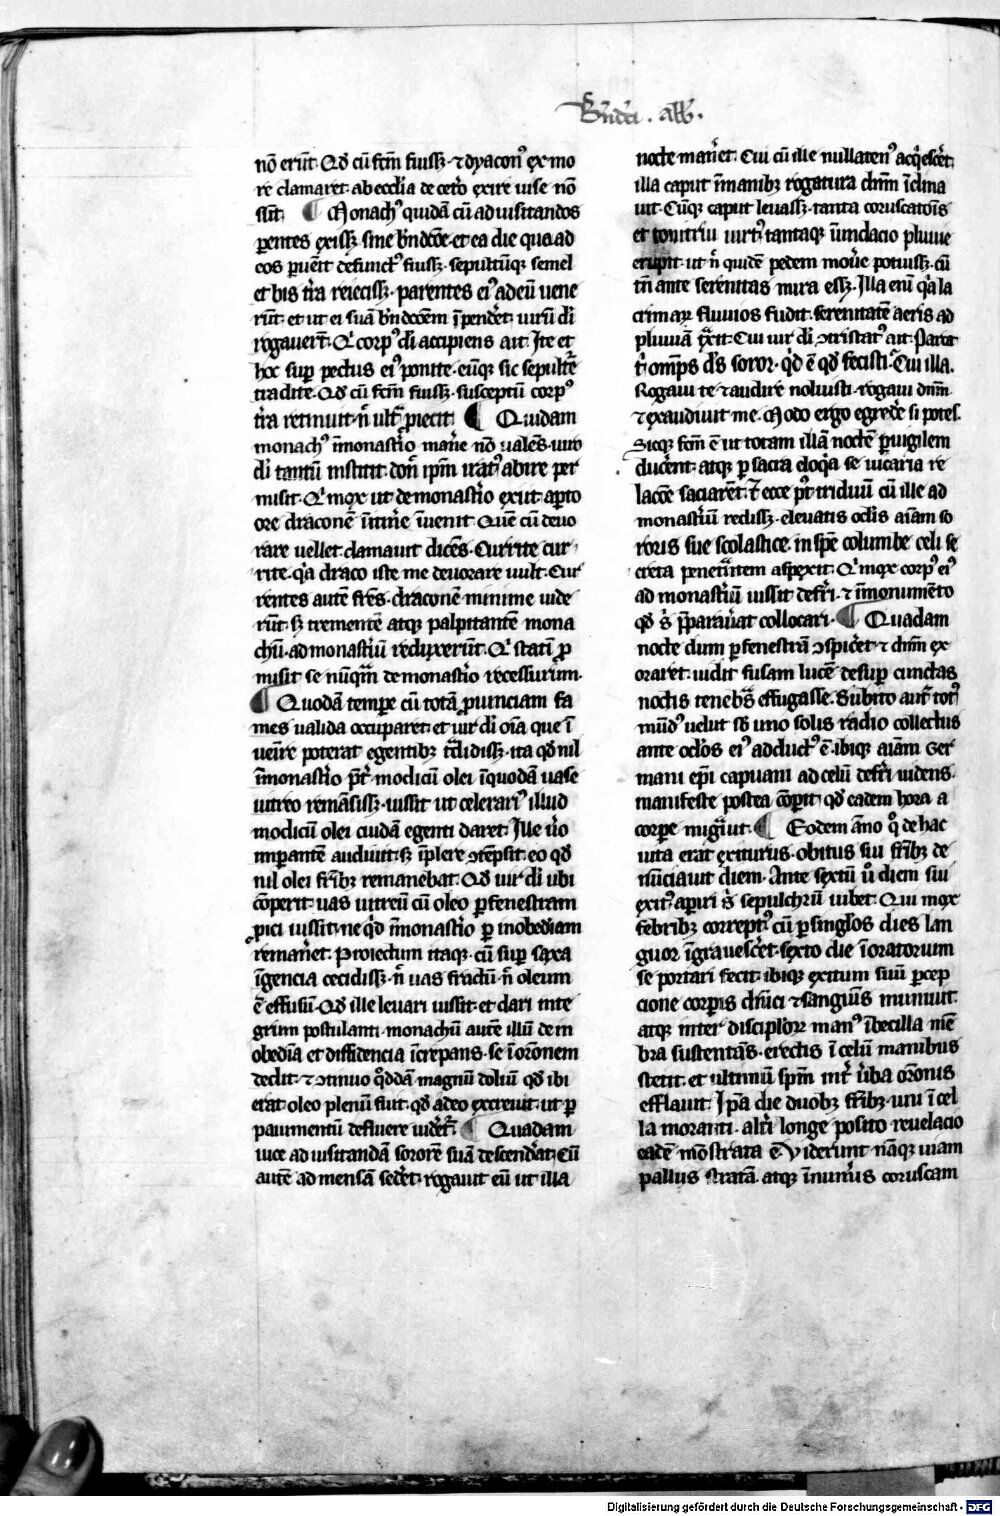 Bn̄dc̄i . abb̄.
nō erūt. Qd̓ cū fcm̄ fuiss&. ⁊ dyaconꝰ ex mo
re clamaret. ab eccl̓ia de cet̓o exire uise nō
sūt. ¶ Monachꝰ quidā cū ad uisitandos
ꝑentes exiss& sine bn̄dcōe. et ea die qua ad
eos ꝑuēit defunctꝰ fuiss&. sepultūqꝫ semel
et bis t̄ra reieciss&. parentes eiꝰ ad eū uene
rūt. et ut ei suā bn̄dcōem īpend̓et. uirū dī
rogauer̄t. Qͥ corpꝰ dn̄i accipiens ait. Ite et
hoc suꝑ pectus eiꝰ ponite. eūqꝫ sic sepult̄e
tradite. Qd̓ cū fcm̄ fuiss&. susceptū corpꝰ
t̄ra retinuit. n̄ ult̓ ꝓiecit. ¶ Quidam
monachꝰ īmonast̓io man̄e nō ualēs. uiro
dī tantū institit. don̄ ip̄m iratꝰ abire per
misit. Qͥ mox ut de monast̓io exiit aꝑto
ore draconē ītin̄e īuenit. Quē cū deuo
rare uellet. clamauit dicēs. Currite cur
rite. qͥa draco iste me deuorare uult. Cur
rentes autē frēs. draconē minime uide
rūt. sꝫ trementē atqꝫ palpitantē mona
chū. ad monast̓iū reduxerūt. Qͥ statī ꝓ
misit se nūqͣm de monast̓io recessurum.
¶ Quodā tempe cū totā ꝓuinciam fa
mes ualida occuparet. et uir dī oīa que ī
uenīre poterat egentibꝫ t̓didiss&. ita qd̓ nil
īmonast̓io p̄t̓ modicū olei īquodā uase
uitreo remāsiss&. iussit ut celerariꝰ illud
modicū olei cuidā egenti daret. Ille u̓o
imꝑantē audiuit. sꝫ īplere ꝯtēpsit. eo qd̓
nil olei fr̄ibꝫ remanebat. Qd̓ uir dī ubi
cōperit. uas uitreū cū oleo ꝑ fenestram
ꝓici iussit. ne qͥd īmonast̓io ꝑ inobediam
reman̓et. Proiectum itaqꝫ. cū suꝑ saxa
īgencia cecidiss&. n̄ uas fractū. n̄ oleum
ē effusū. Qd̓ ille leuari iussit. et dari inte
grum postulanti. monachū autē illū de in
obediā et diffidencia īcrepans. se ī orōnem
dedit. ⁊ ꝯtinuo qͦddā magnū doliū qd̓ ibi
erat. oleo plenū fiut. qd̓ adeo excreuit. ut ꝑ
pauimentū defluere uid̓et̓. ¶ Quadam
uice ad uisitandā sororē suā descend̓at. Cū
autē ad mensā sed̓et. rogauit eū ut illa
nocte man̓et. Cui cū ille nullatenꝰ acqͥesc̓et.
illa caput īmanibꝫ rogatura dn̄m īclina
uit. Cūqꝫ caput leuass&. tanta coruscatōis
et tonitrui uirtꝰ. tantaqꝫ īundacio pluuie
erupit. ut n̄ quidē pedem mou̓e potuiss&. cū
tn̄ ante serenitas mira ess&. Illa eni qͥa la
crimaꝝ fluuios fudit. serenitatē aeris ad
pluuiā t̓xit. Cui uir dī ꝯtristatꝰ ait. Parat
t̓ om̄ps ds̄ soror. qͥd ē qd̓ fecisti. Cui illa.
Rogaui te ⁊ audire noluisti. rogaui dn̄m
⁊ exaudiuit me. Modo ergo egred̓e si potes.
Sicqꝫ fcm̄ ē ut totam illā noctē ꝑuigilem
duc̓ent. atqꝫ ꝑ sacra eloqͥa se uicaria re
lacōe saciarēt. Et ecce p̄t triduū cū ille ad
monast̓iū rediss&. eleuatis oclis aīam so
roris sue scolastice. in spē columbe celi se
creta penet̓ntem aspexit. Qͥ mox corpꝰ eiꝰ
ad monast̓iū iussit def̓ri. ⁊ īmonumēto
qd̓ s̓ p̄parau̓at collocari. ¶ Quadam
nocte dum ꝑ fenestrā ꝯspic̓et ⁊ dn̄m ex
oraret. uidit fusam lucē desuꝑ cunctas
noctis teneb̓s effugasse. Subito aut̄ totꝰ
mūdꝰ uelut sb̓ uno solis radio collectus
ante oclos eiꝰ adductꝰ ē. ibiqꝫ aīam Ger
mani ep̄i capuani ad celū def̓ri uidens.
manifeste postea cōperit qd̓ eadem hora a
corpe migͣuit. ¶ Eodem āno qͦ de hac
uita erat exiturus. obitus sui fr̄ibꝫ de
nūciauit diem. Ante sextū u̓o diem sui
exitꝰ aperiri s̓ sepulchrū iubet. Qui mox
febribꝫ correptꝰ cū ꝑ singlos dies lan
guor īgrauesc̓et. sexto die ī oratorium
se portari fecit. ibiqꝫ exitum suū ꝑcep
cione corpis dn̄ici ⁊ sanguīs muniuit.
atqꝫ inter disciploꝝ manꝰ ībecilla mē
bra sustentās. erectis ī celū manibus
stetit. et ultimū spm̄ int̓ u̓ba orōnis
efflauit. Ip̄a die duobꝫ fr̄ibꝫ. uni ī cel
la moranti. alt̓i longe posito reuelacio
eadē mōstrata ē. Viderunt nāqꝫ uiam
pallijs stratā. atqꝫ īnum̓is coruscam
Digitalisierung gefördert durch die Deutsche Forschungsgemeinschaft - DFG